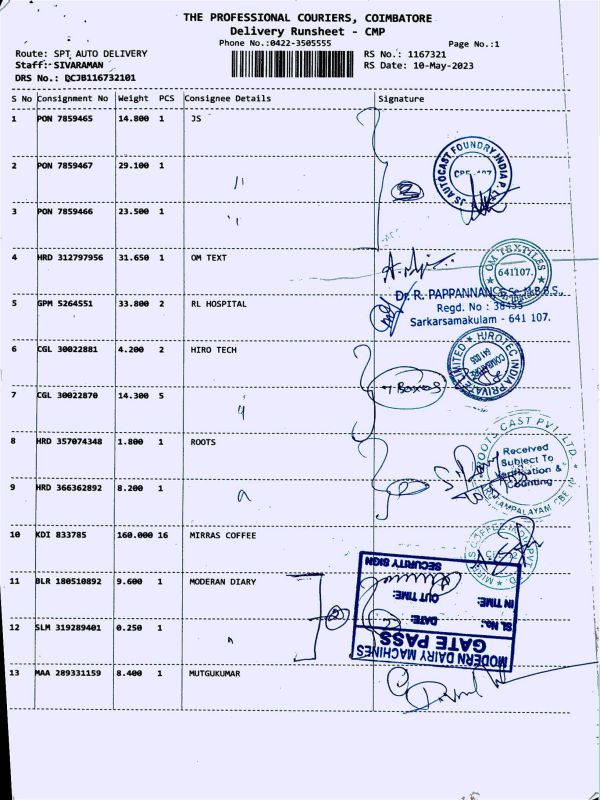 THE PROFESSIONAL COURIERS, COIMBATORE
Delivery Runsheet - CMP
Phone No.:0422-3505555 Page No.:1
Route: SPT AUTO DELIVERY RS No.: 1167321
Staff: SIVARAMAN RS Date: 10-May-2023
DRS No.: DCJB116732101
S No Consignment No Weight PCS Consignee Details Signature
1 PON 7859465 14.800 1 JS
JS AUTOCAST FOUNDRY INDIA P. L
2 PON 7859467 29.100 1 "
3 PON 7859466 23.500 1 "
4 HRD 312797956 31.650 1 OM TEXT
OM TEXTILES
641107.
5 GPM 5264551 33.800 2 RL HOSPITAL
Dr. R. PAPPANNAN B.Sc.,M.B.B.S.,
Regd. No : 38455
Sarkarsamakulam - 641 107.
6 CGL 30022881 4.200 2 HIRO TECH
HIROTEC INDIA PRIVATE LIMITED
COIMBATORE
641 035
7 CGL 30022870 14.300 5 "
7 Boxes
8 HRD 357074348 1.800 1 ROOTS
ROOTS CAST PVT. LTD.
Received
Subject To
Verification &
Counting
9 HRD 366362892 8.200 1 "
10 KDI 833785 160.000 16 MIRRAS COFFEE
11 BLR 180510892 9.600 1 MODERAN DIARY
12 SLM 319289401 0.250 1 "
MODERN DAIRY MACHINES
GATE PASS
SL No.: DATE:
IN TIME: OUT TIME:
SECURITY SIGN
13 MAA 289331159 8.400 1 MUTGUKUMAR